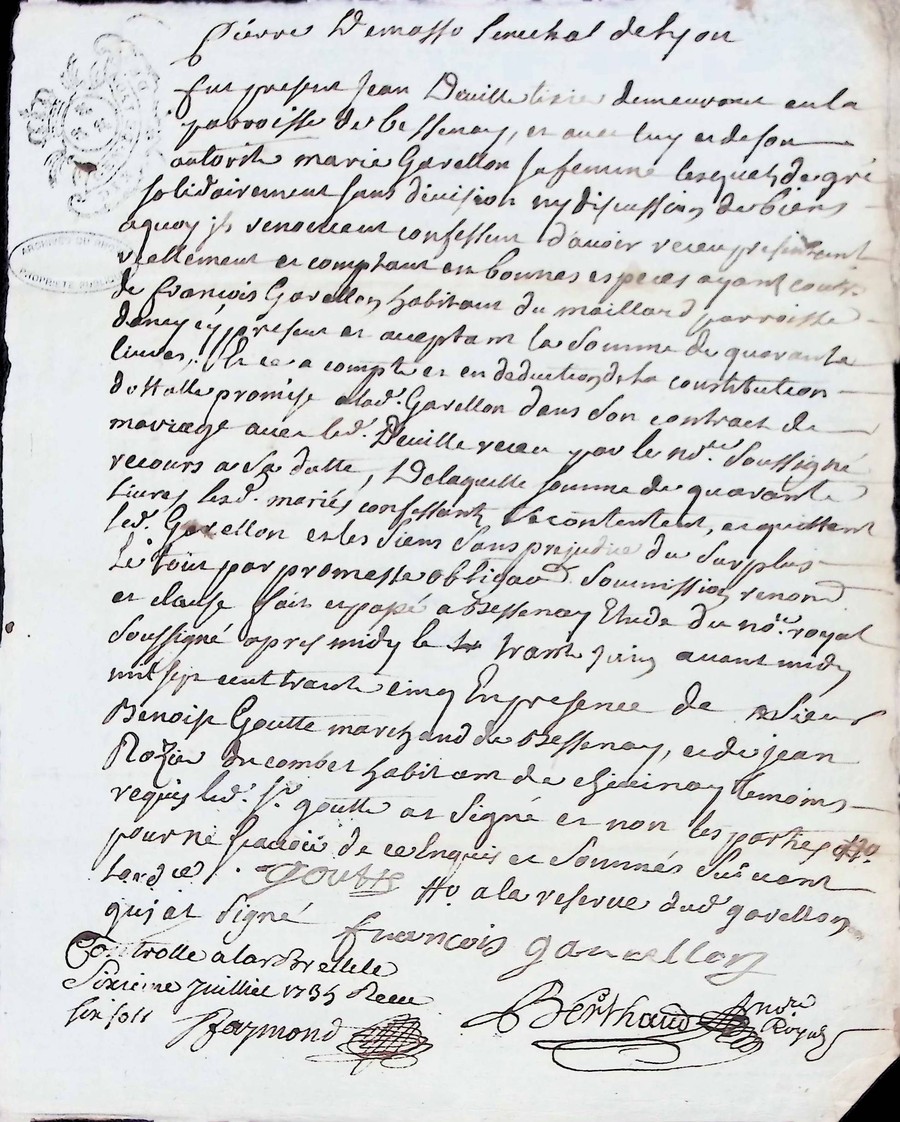 Pierre Demasso Senechal de Lyon
Fut present Jean Deville tisie demeurant en la
parroisse de Bessenay, et avec luy et de son
autorité marie Gavellon sa femme lesquels de gré
solidairement sans division ny discussion de biens
aquoy ils renoncent confessent d'avoir receu presentement
reellement et comptant en bonnes especes ayant cours
de François Gavellon habitant du maillard parroisse
dancy cy present et aceptant la somme de quarante
livres, Et ce a compte et en deduction de la constitution
dottalle promise a lad. Gavellon dans son contract de
mariage avec led. Deville receu par le no.re soussigné
recours a sa datte, De laquelle somme de quarante
livres lesd. mariés confessants se contentent, et quittent
led. Gavellon et les siens sans prejudice du surplus
Le tout par promesse obligaõn soummission renonõn
et clause fait et passé a Bessenay Etude du no.re royal
soussigné apres midy le trante juin avant midy
mil sept cent trante cinq En presence de Sieur
Benoist Goutte marchand de Bessenay, et de jean
Rozier du combet habitant de temoins
requis led. Sr. goutte at signé et non les parties
pour ne sçavoir de ce Enquis et sommés suivant
lord.ce Goutte a la reserve dud gavellon
qui at signé françois gavellon
Controlle a larbrelle le
sixieme Juillet 1735 Receu
six sols Raymond Berthaud no.re
Royal
ARCHIVES DU
PROPRIETE PUBLIQUE